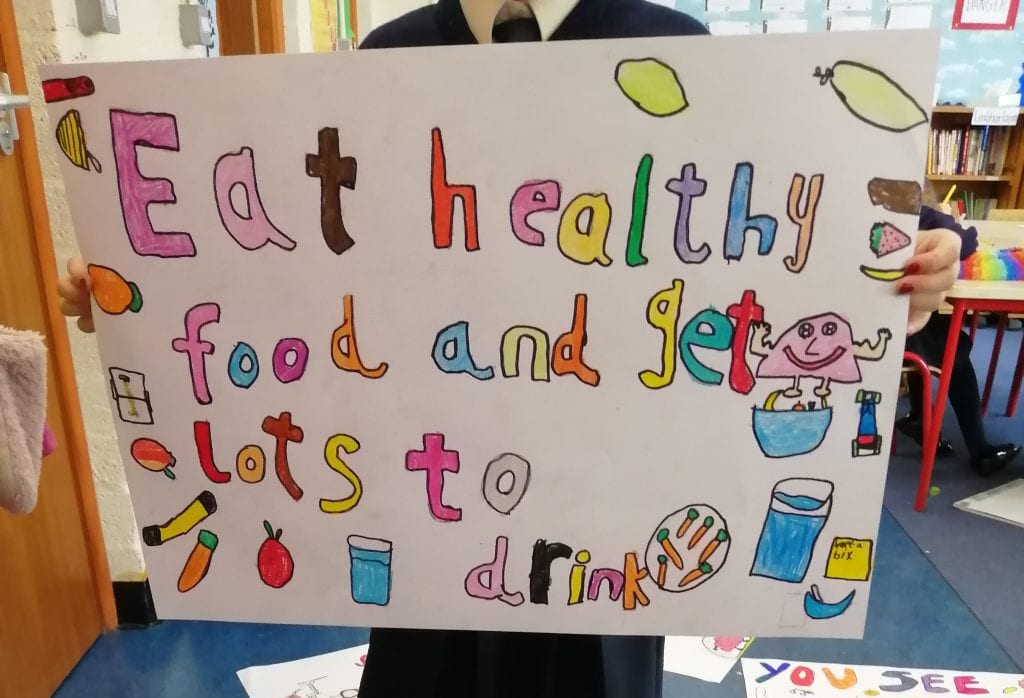 DANGER
Eat healthy
food and get
lots to
drink
weet a
bix
YOU SEE